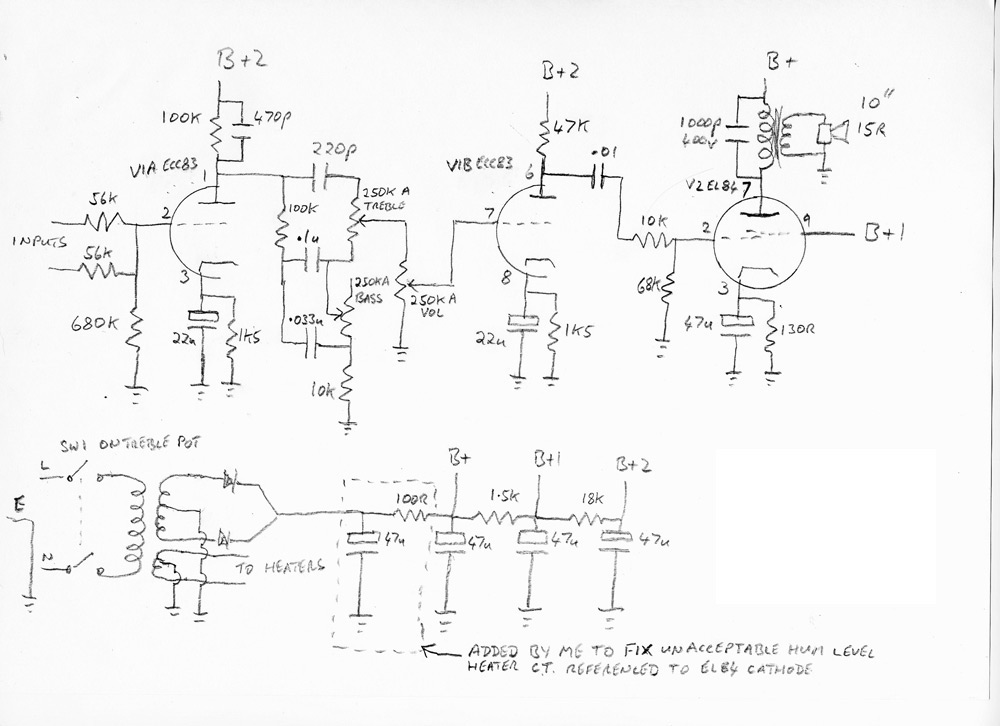 B+2
B+2
B+
100K
470p
47K
1000p
400v
10"
15R
220p
V1A ECC83
1
V1B ECC83
6
.01
V2 EL84
7
56K
2
100K
250K A
TREBLE
7
10K
2
9
B+1
INPUTS
56K
.1u
3
250KA
BASS
250K A
VOL
8
68K
3
680K
22u
1K5
.033u
22u
1K5
47u
130R
10K
SW1 ON TREBLE POT
L
B+
B+1
B+2
E
100R
1.5K
18K
47u
47u
47u
47u
N
TO HEATERS
ADDED BY ME TO FIX UNACCEPTABLE HUM LEVEL
HEATER C.T. REFERENCED TO EL84 CATHODE